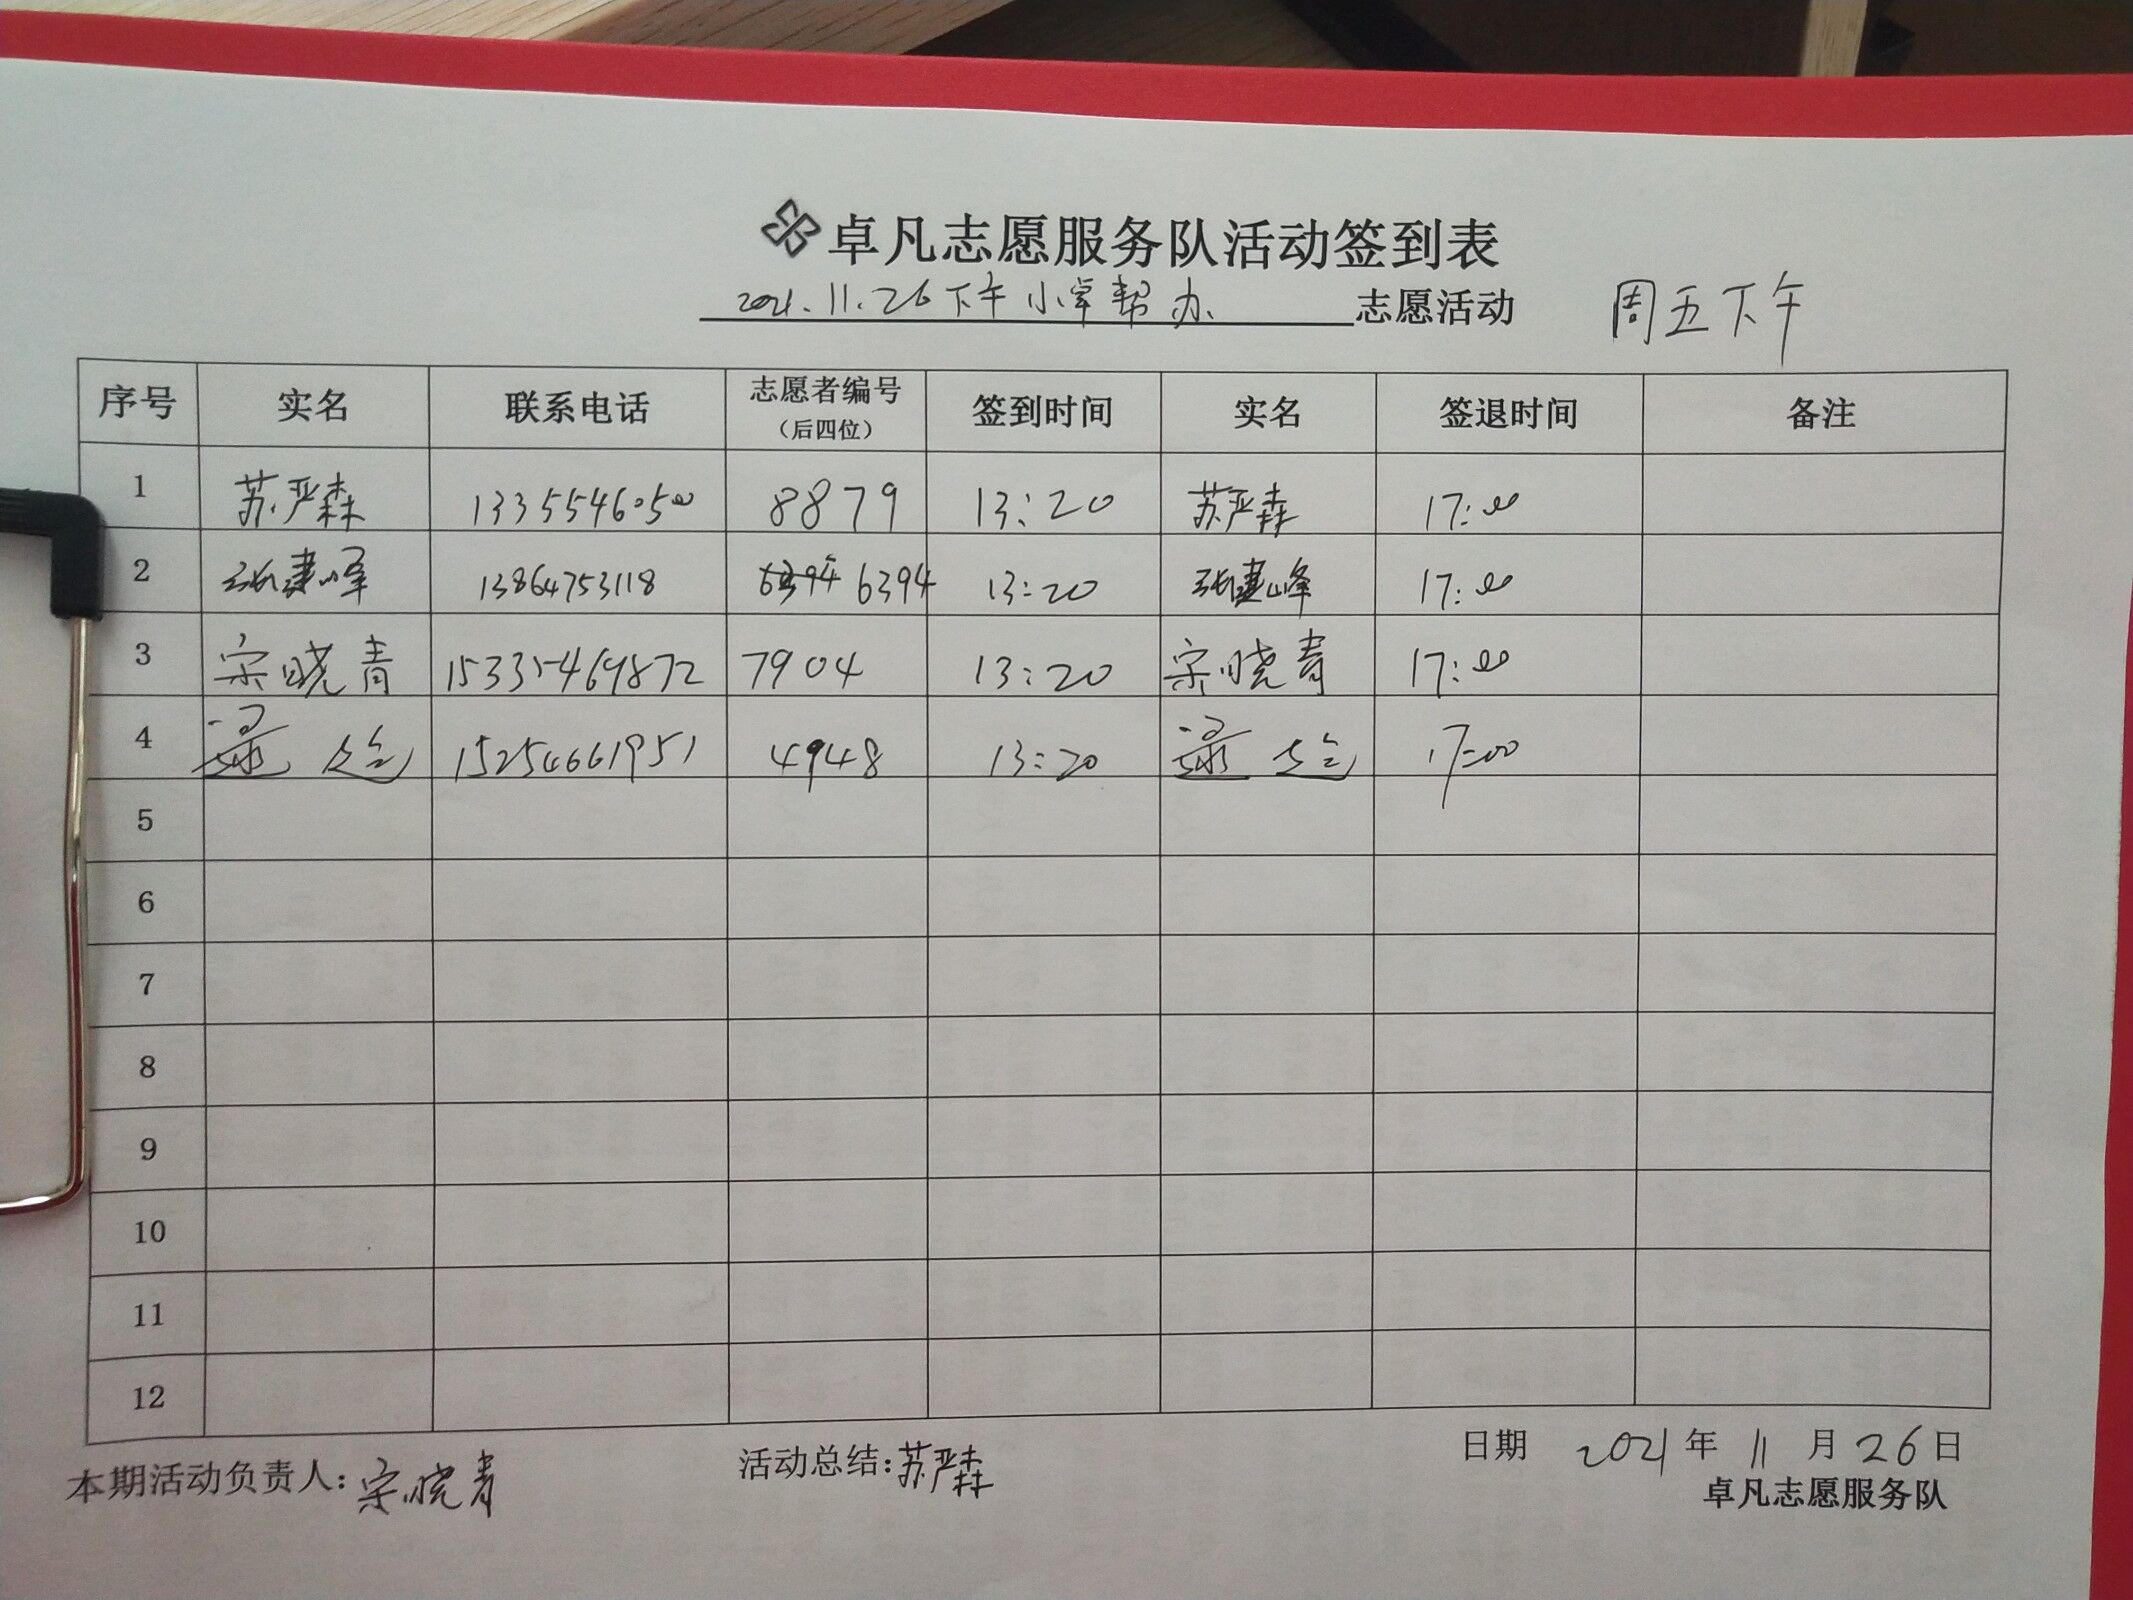 卓凡志愿服务队活动签到表
2021.11.26下午 小卓帮办 志愿活动 周五下午
序号 实名 联系电话 志愿者编号 签到时间 实名 签退时间 备注
（后四位）
1 苏严森 13355460500 8879 13:20 苏严森 17:00
2 张建峰 13864753118 6394 13:20 张建峰 17:00
3 宋晓青 15335469872 7904 13:20 宋晓青 17:00
4 15254661951 4948 13:20 17:00
5
6
7
8
9
10
11
12
本期活动负责人:宋晓青 活动总结:苏严森 日期 2021年 11 月 26日
卓凡志愿服务队